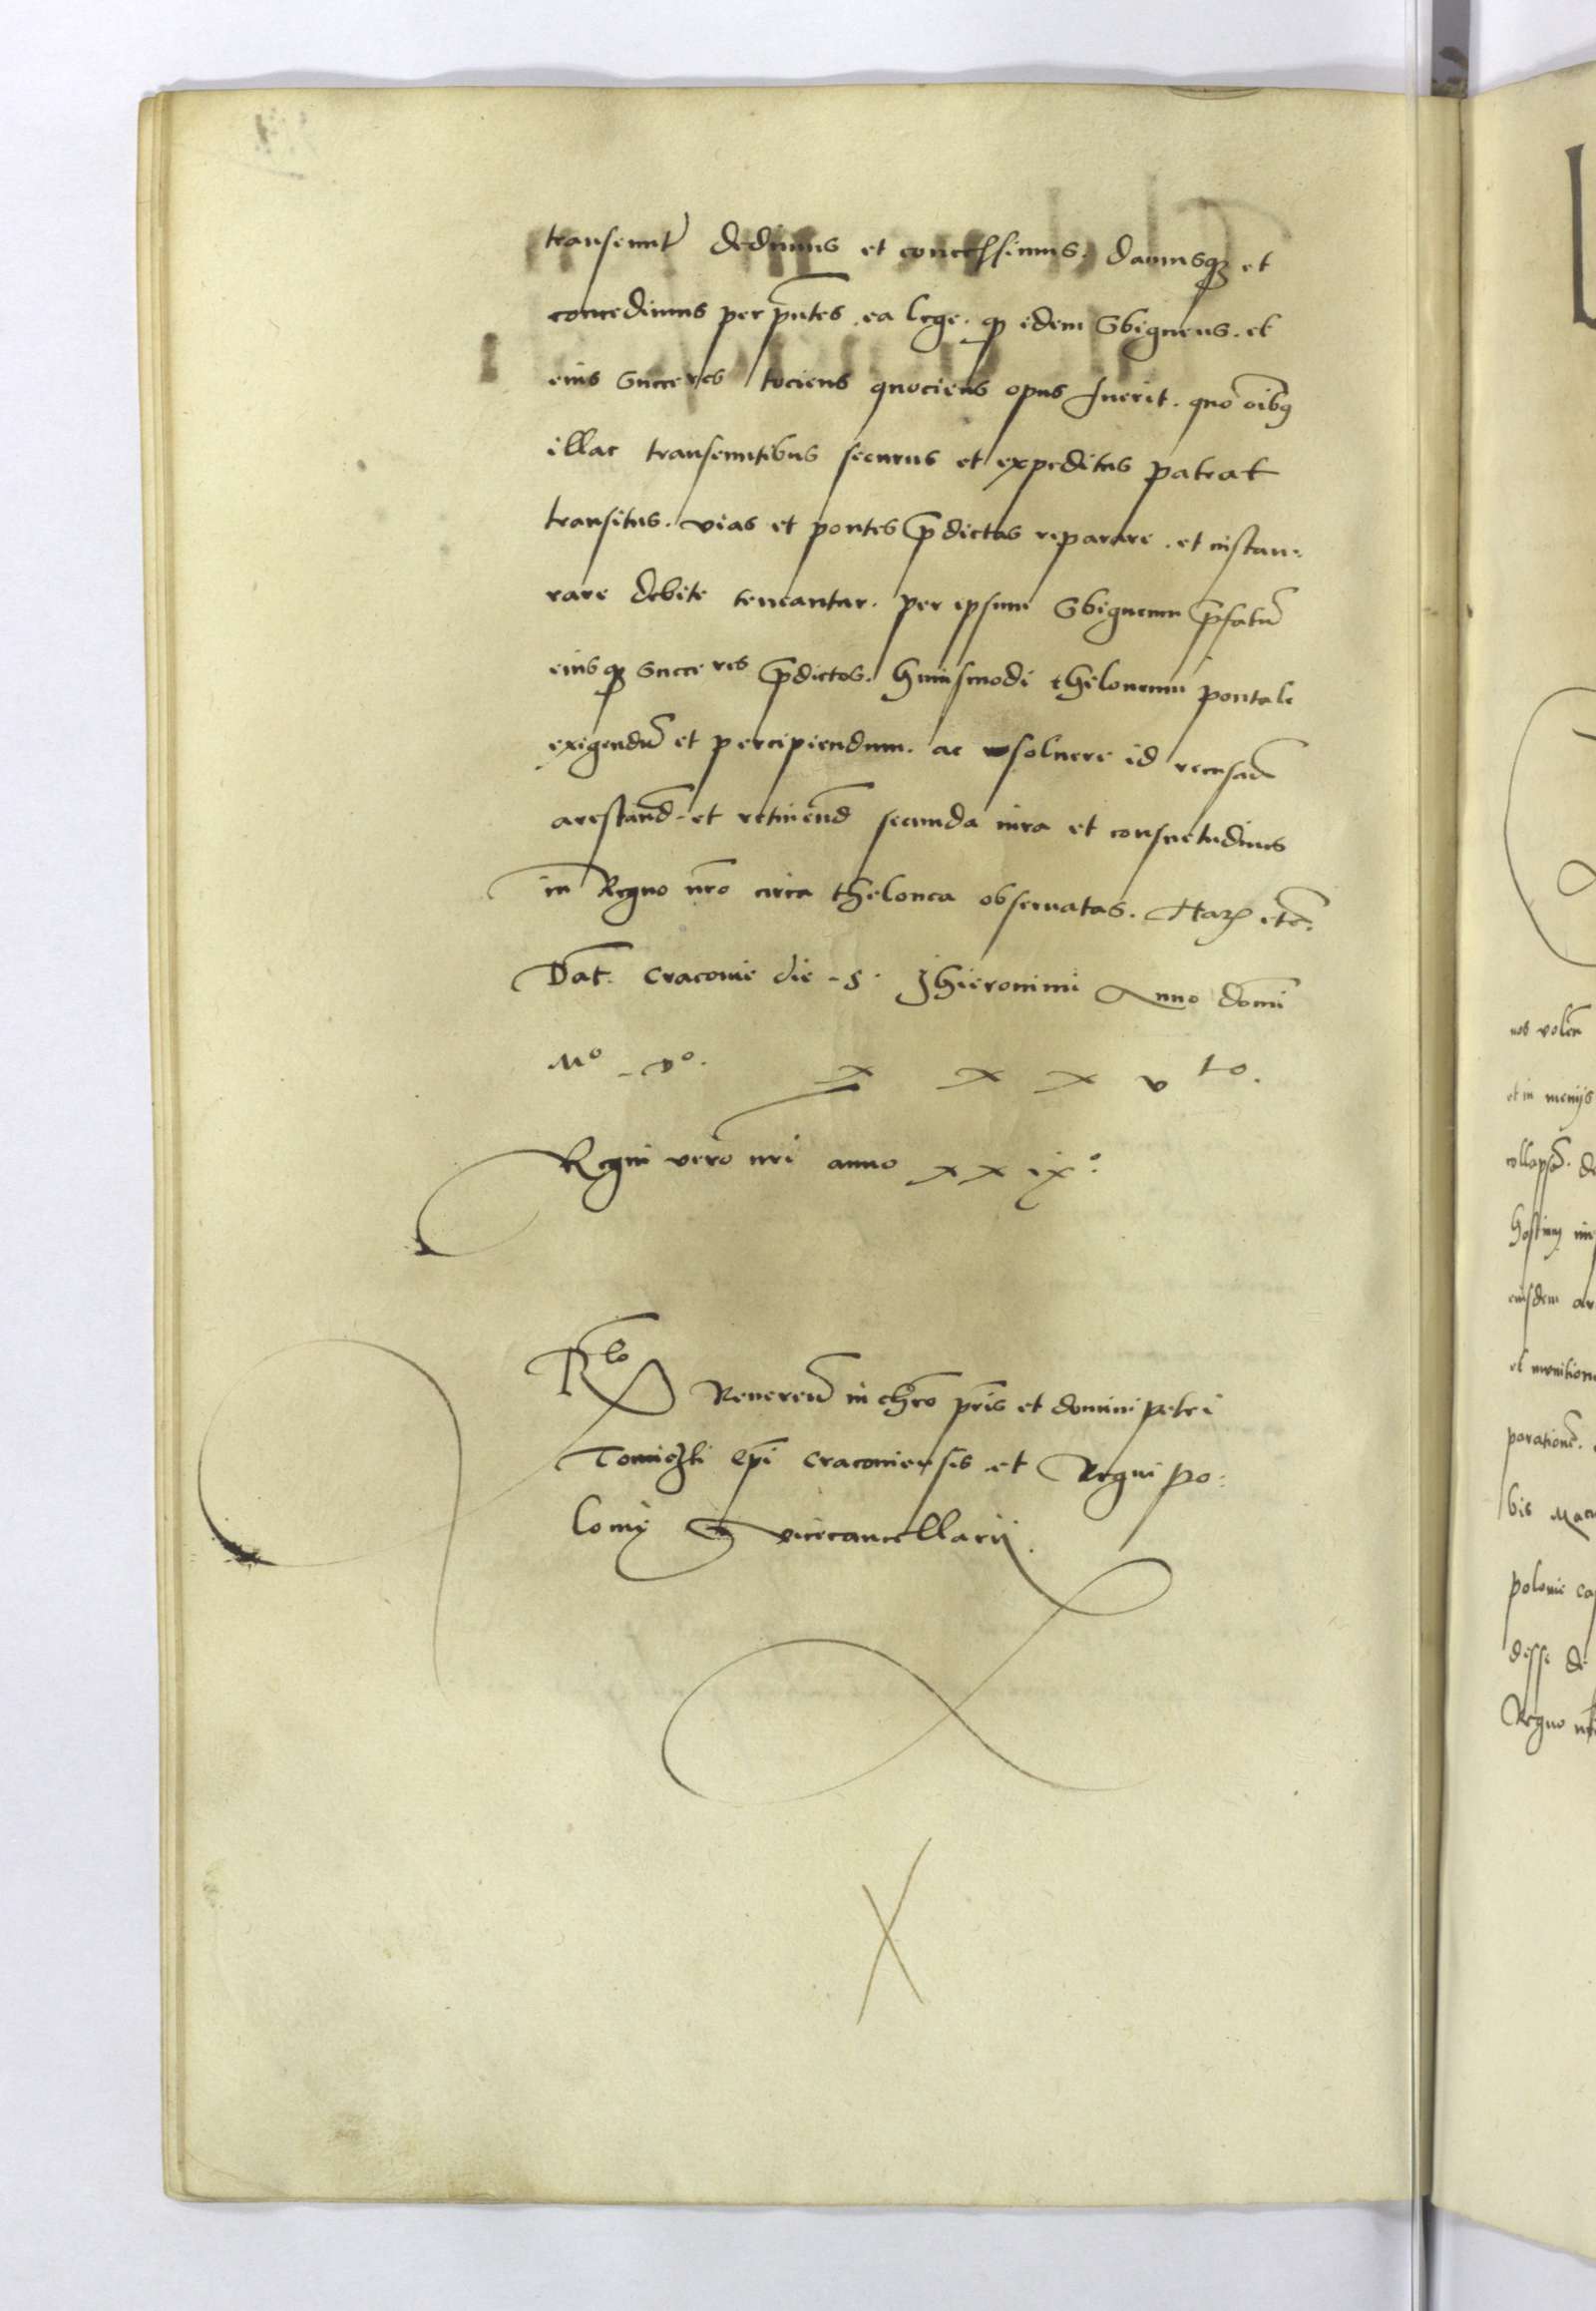 transeunt dedimus et concessimus. damusq et
concedimus per pntes ea lege. q idem Sbigneus. et
eius Succeres tociens quociens opus fuerit. quo oibus
illac transeuntibus securus et expeditus pateat
transitus. vias et pontes pdictas reparare. et instau-
rare debite teneantur. per ipsum Sbigneum pfatu
eiusq Succeres pdictos. huiusmodi theloneum pontale
exigendu et percipiendum. ac soluere id recusan
arestand et retinend secunda iura et consuetudines
in Regno nro circa thelonea obseruatas. Har etc.
Dat. Cracovie die S. Jhieronimi Anno domi
Mo Do. x x x v to.
Regni vero nri anno xxixo.
Rlo Reueren in chro pris et domini petri
Tomiczki epi Cracouiensis et Regni po-
lonie vicecancellarij.
nos volen
et in menijs
eiusdem ar
et munition
paratione.
bis
polonie ca
desse de
Regno